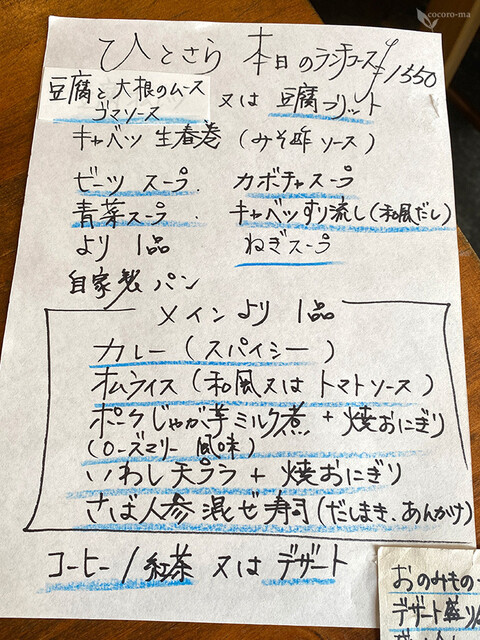 cocoro-ma
ひとさら 本日のランチコース ¥1550
豆腐と大根のムース
ゴマソース 又は 豆腐フリット
キャベツ 生春巻 (みそ酢ソース)
ビーツ スープ. カボチャスープ
青菜スープ. キャベツすり流し(和風だし)
より 1品 ねぎスープ
自家製パン
メインより 1品
カレー (スパイシー)
オムライス (和風又はトマトソース)
ポークじゃが芋ミルク煮 + 焼おにぎり
(ローズマリー 風味)
いわし天プラ + 焼おにぎり
さば人参混ぜ寿司(だしまき、あんかけ)
コーヒー/紅茶 又は デザート
おのみもの
デザート盛り